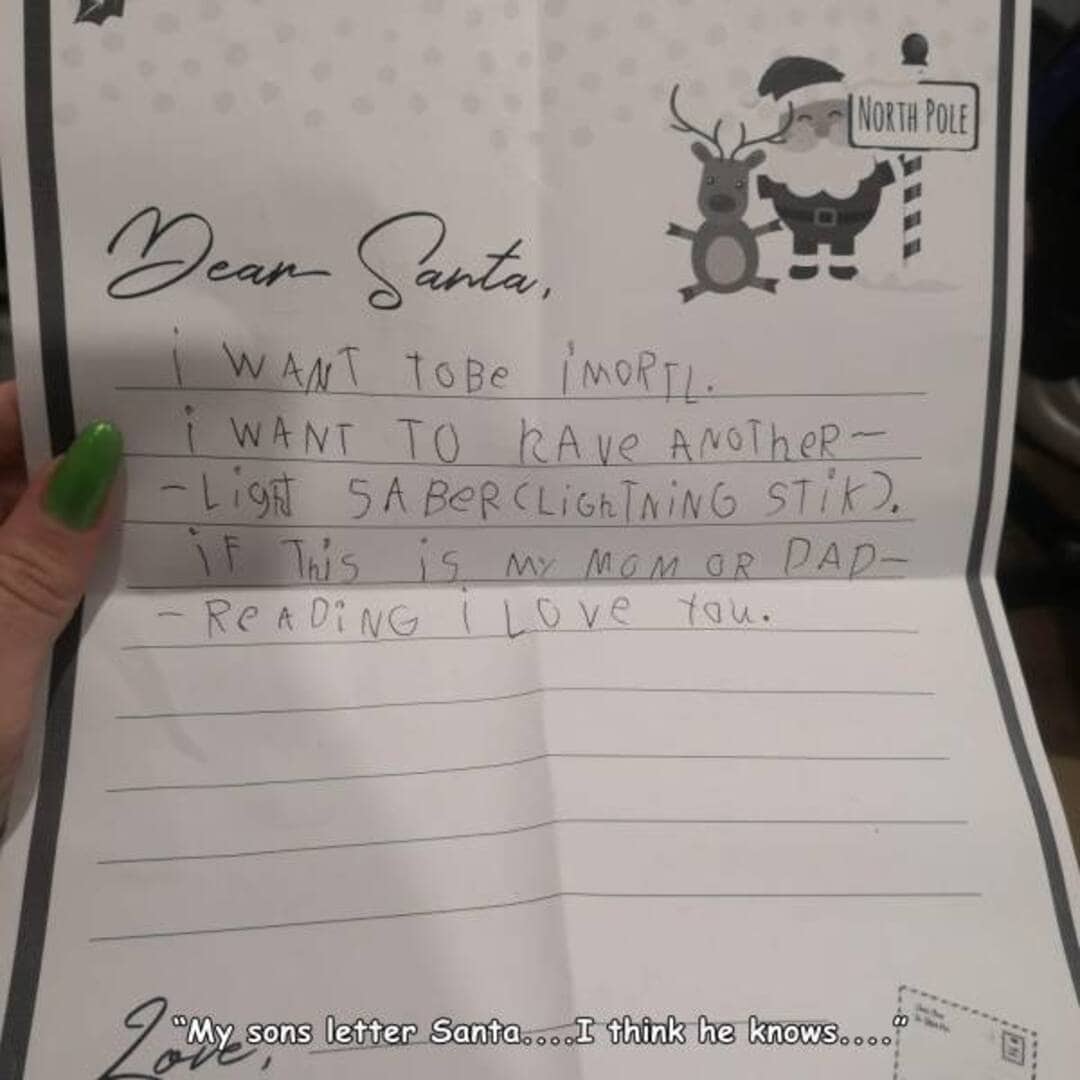 NORTH POLE
Dear Santa,
i WANT TO Be iMORTL.
i WANT TO hAve ANOTheR-
-LigHt SABeR(LighTNiNG STiK).
iF This is MY MOM OR DAD-
-ReADiNG i LOVe You.
Love,
"My sons letter Santa....I think he knows...."